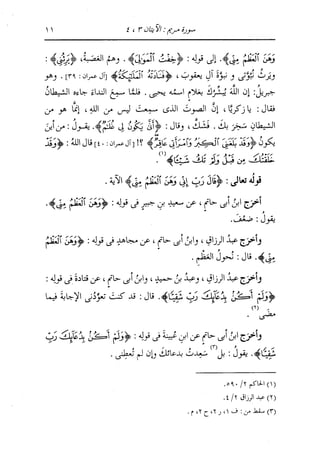 سورة مريم : الآيتان ٣ ، ٤
١١
وَهَنَ ٱلْعَظْمُ مِنِّى﴾ . إلى قوله : ﴿خِفْتُ ٱلْمَوَٰلِىَ﴾ . وهم العَصَبةُ ، ﴿يَرِثُنِى﴾ :
ويَرِثُ نُبُوَّتى و نبوةَ آلِ يعقوبَ ، ﴿فَنَادَتْهُ ٱلْمَلَٰٓئِكَةُ﴾ [آل عمران : ٣٩] . وهو
جبريلُ : إن اللهَ يُبشِّرُك بغلامٍ اسمُه يحيى . فلمَّا سمِع النداءَ جاءه الشيطانُ
فقال : يا زكريَّا ، إنَّ الصوتَ الذى سمِعتَ ليس من اللهِ ، إنَّما هو من
الشيطانِ سَخِرَ بك . فشكَّ ، وقال : ﴿أَنَّىٰ يَكُونُ لِى غُلَٰمٌ﴾ . يقولُ : من أين
يكونُ ﴿وَقَدْ بَلَغَنِىَ ٱلْكِبَرُ وَٱمْرَأَتِى عَاقِرٌ﴾ ؟! [آل عمران : ٤٠] قال اللهُ : ﴿وَقَدْ
خَلَقْتُكَ مِن قَبْلُ وَلَمْ تَكُ شَيْـًٔا﴾ (١) .
قولُه تعالى : ﴿قَالَ رَبِّ إِنِّى وَهَنَ ٱلْعَظْمُ مِنِّى﴾ الآية .
أخرَج ابنُ أبى حاتمٍ ، عن سعيدِ بنِ جبيرٍ فى قوله : ﴿وَهَنَ ٱلْعَظْمُ مِنِّى﴾ .
يقولُ : ضعُف .
وأخرَج عبدُ الرزاقِ ، وابنُ أبى حاتمٍ ، عن مجاهدٍ فى قوله : ﴿وَهَنَ ٱلْعَظْمُ
مِنِّى﴾ . قال : نُحولُ العَظْمِ .
وأخرَج عبدُ الرزاقِ ، وعبدُ بنُ حميدٍ ، وابنُ أبى حاتمٍ ، عن قتادةَ فى قوله :
﴿وَلَمْ أَكُنۢ بِدُعَآئِكَ رَبِّ شَقِيًّا﴾ . قال : قد كنتَ تعوِّدُنى الإجابةَ فيما
مضَى (٢) .
وأخرَج ابنُ أبى حاتمٍ عن ابنِ عُيينةَ فى قوله : ﴿وَلَمْ أَكُنۢ بِدُعَآئِكَ رَبِّ
شَقِيًّا﴾ . يقولُ : بل (٣) سعِدتُ بدعائك وإن لم تُعطِنى .
(١) الحاكم ٢/ ٥٩٠.
(٢) عبد الرزاق ٢/ ٤.
(٣) سقط من : ف ١، ر ٢، ح ٢، م .